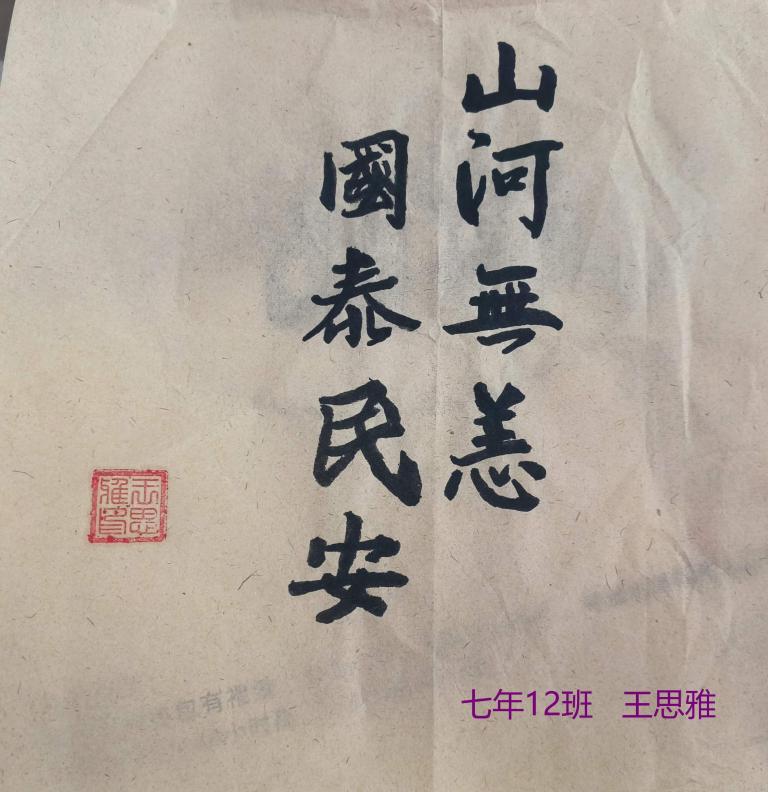 山河無恙
國泰民安
王思雅印
七年12班 王思雅